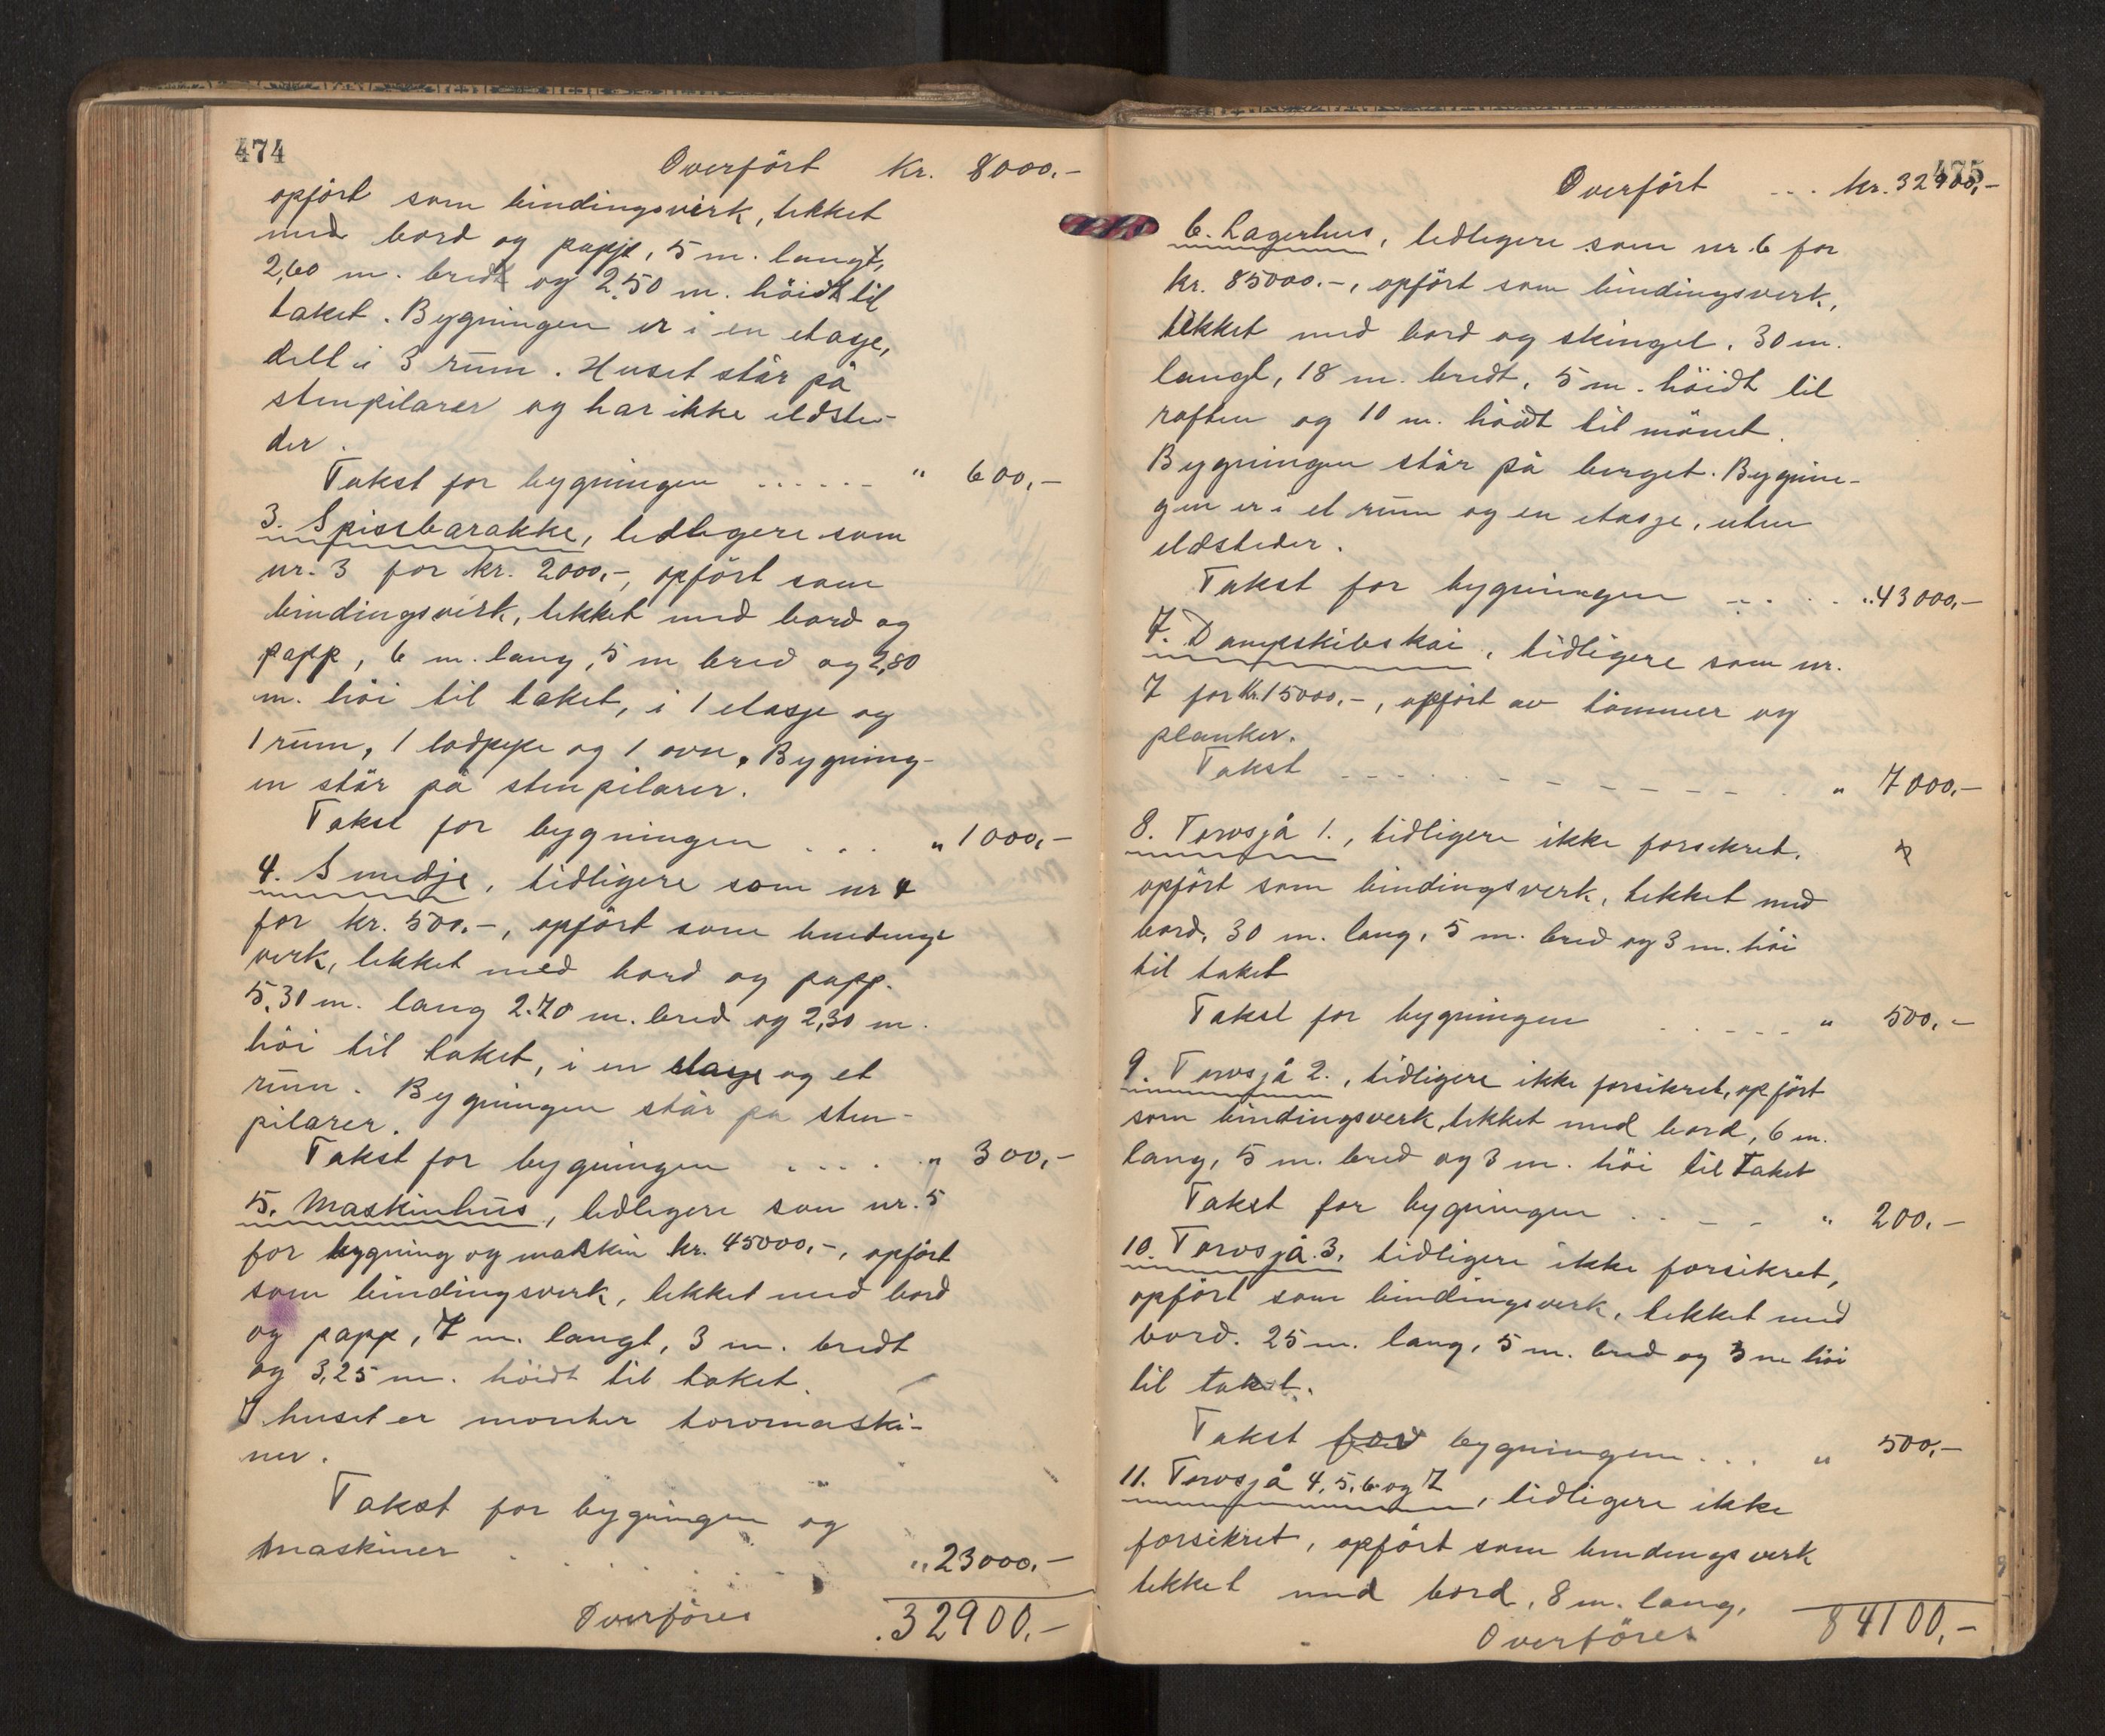 474
Overfört Kr. 8000.-
opfört som bindingsverk, tekket
med bord og papp, 5 m. langt,
2,60 m. bredt og 2.50 m. höidt til
taket. Bygningen er i en etasje,
delt i 3 rüm. Huset står på
stenpilarer og har ikke ildste-
der.
Takst for bygningen ...... " 600,-
3. Spisebarakke, tidligere som
nr. 3 for kr. 2000,-, opfört som
bindingsverk, tekket med bord og
papp, 6 m. lang, 5 m bred og 2,80
m. höi til taket, i 1 etasje og
1 rüm, 1 lodpipe og 1 ovn. Bygning-
en står på stenpilarer.
Takst for bygningen . . . " 1000,-
4. Smedje, tidligere som nr 4
for kr. 500.-, opfört som bindings
verk, tekket med bord og papp.
5.30 m. lang 2.70 m. bred og 2,30 m.
höi til taket, i en etasje og et
rüm. Bygningen står på sten-
pilarer.
Takst for bygningen . . . . " 300,-
5. Maskinhüs, tidligere som nr. 5
for bygning og maskin kr. 45000,-, opfört
som bindingsverk, tekket med bord
og papp, 7 m. langt, 3 m. bredt
og 3,25 m. höidt til taket.
I huset er monter torvmaski-
ner.
Takst for bygningen og
maskiner . . . . . . " 23000.-
Overföres 32900.-
475
Overfört ... kr. 32900,-
6. Lagerhus, tidligere som nr. 6 for
kr. 85000.-, opfört som bindingsverk,
tekket med bord og skingel. 30 m.
langt, 18 m. bredt, 5 m. höidt til
raften og 10 m. höidt til mönet.
Bygningen står på berget. Bygnin-
gen er i et rüm og en etasje, uten
ildsteder.
Takst for bygningen . . . . " 43000,-
7. Dampskibskai, tidligere som nr.
7 for kr. 15000.-, opfört av tömmer og
planker.
Takst - - - - - - - - - " 7000,-
8. Torvsjå 1., tidligere ikke forsikret.
opfört som bindingsverk, tekket med
bord, 30 m. lang, 5 m. bred og 3 m. höi
til taket
Takst for bygningen . . - - - " 500,-
9. Torvsjå 2., tidligere ikke forsikret, opfört
som bindingsverk, tekket med bord, 6 m.
lang, 5 m. bred og 3 m. höi til taket
Takst for bygningen . . - - " 200.-
10. Torvsjå 3. tidligere ikke forsikret,
opfört som bindingsverk, tekket med
bord. 25 m. lang, 5 m. bred og 3 m höi
til taket.
Takst for bygningen . . . " 500,-
11. Torvsjå 4, 5, 6 og 7, tidligere ikke
forsikret, opfört som bindingsverk
tekket med bord, 8 m. lang,
Overföres 84100,-